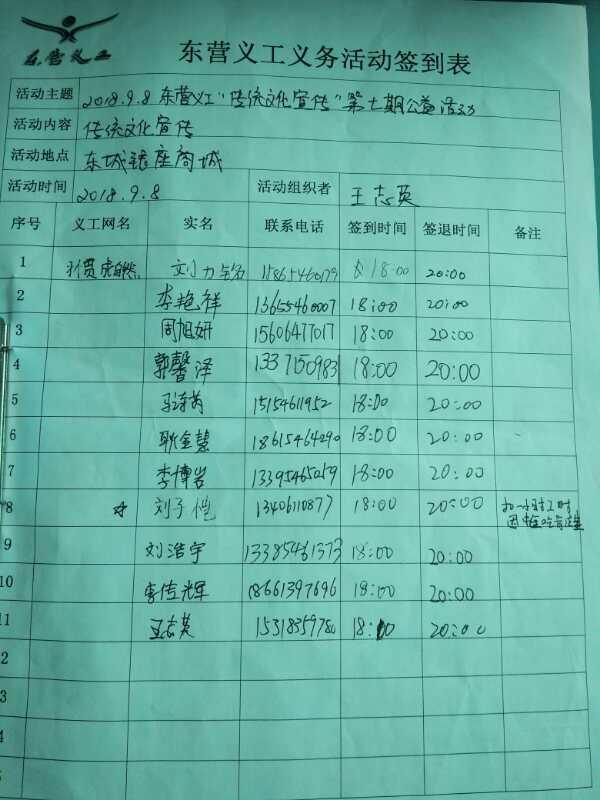 东营义工
东营义工义务活动签到表
活动主题 2018.9.8 东营义工“传统文化宣传”第七期公益活动
活动内容 传统文化宣传
活动地点 东城银座商城
活动时间 2018.9.8 活动组织者 王志英
序号 义工网名 实名 联系电话 签到时间 签退时间 备注
1 15865460179 18:00 20:00
2 李艳祥 13655460007 18:00 20:00
3 周旭妍 15606477017 18:00 20:00
4 郭馨泽 1337150983 18:00 20:00
5 15154611952 18:00 20:00
6 耿金慧 18615464290 18:00 20:00
7 李博岩 13395465059 18:00 20:00
8 ☆ 刘子恺 13406110877 18:00 20:00
9 刘浩宇 13385461373 18:00 20:00
10 李佳辉 18661397696 18:00 20:00
11 王志英 15318359780 18:00 20:00
2
3
4